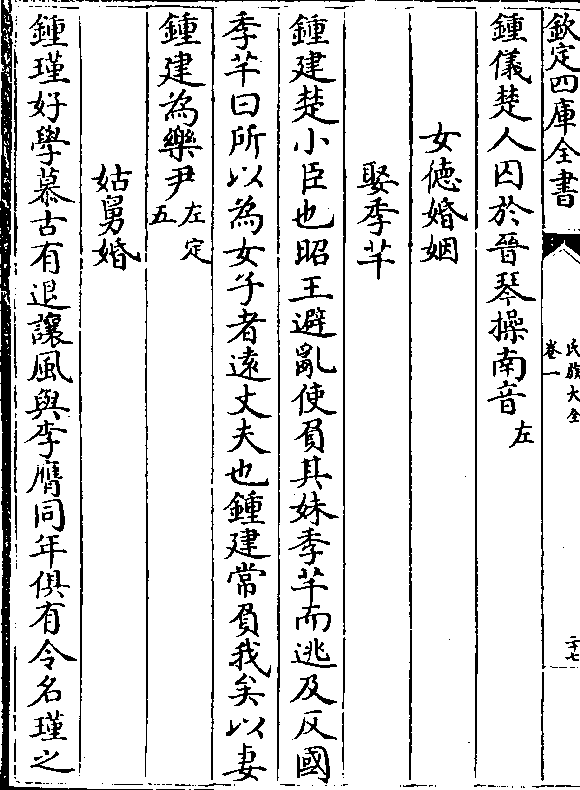 欽定四庫全書
氏族大全
卷一
二十七
鍾儀楚人囚於晉琴操南音左
女徳婚姻
娶季芊
鍾建楚小臣也昭王避亂使負其妹季芊而逃及反國
季芊曰所以為女子者逺丈夫也鍾建常負我矣以妻
鍾建為樂尹左定五
姑舅婚
鍾瑾好學慕古有退讓風與李膺同年俱有令名瑾之